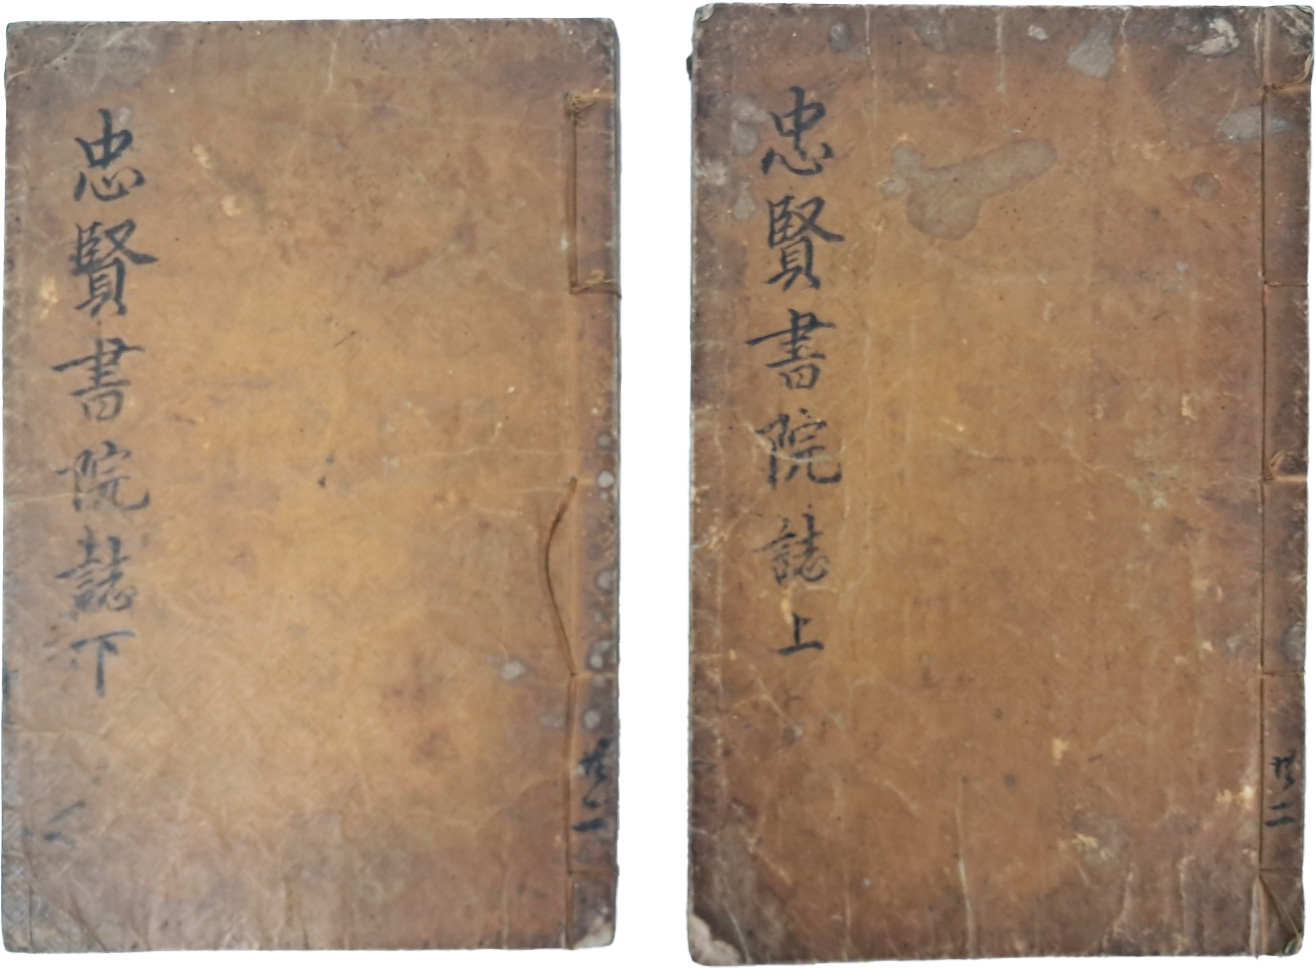 忠賢書院誌上
共二
忠賢書院誌下
共二